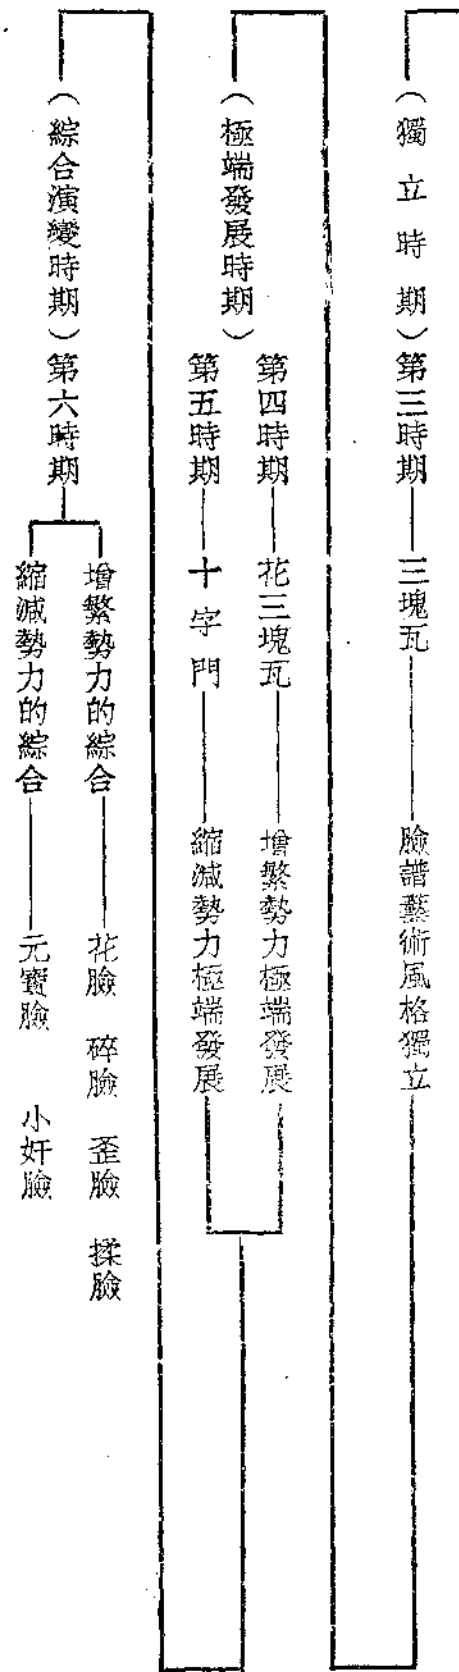 （獨立時期）第三時期 三塊瓦 臉譜藝術風格獨立
（極端發展時期）
第四時期 花三塊瓦 增繁勢力極端發展
第五時期 十字門 縮減勢力極端發展
（綜合演變時期）第六時期
增繁勢力的綜合 花臉 碎臉 歪臉 揉臉
縮減勢力的綜合 元寶臉 小奸臉